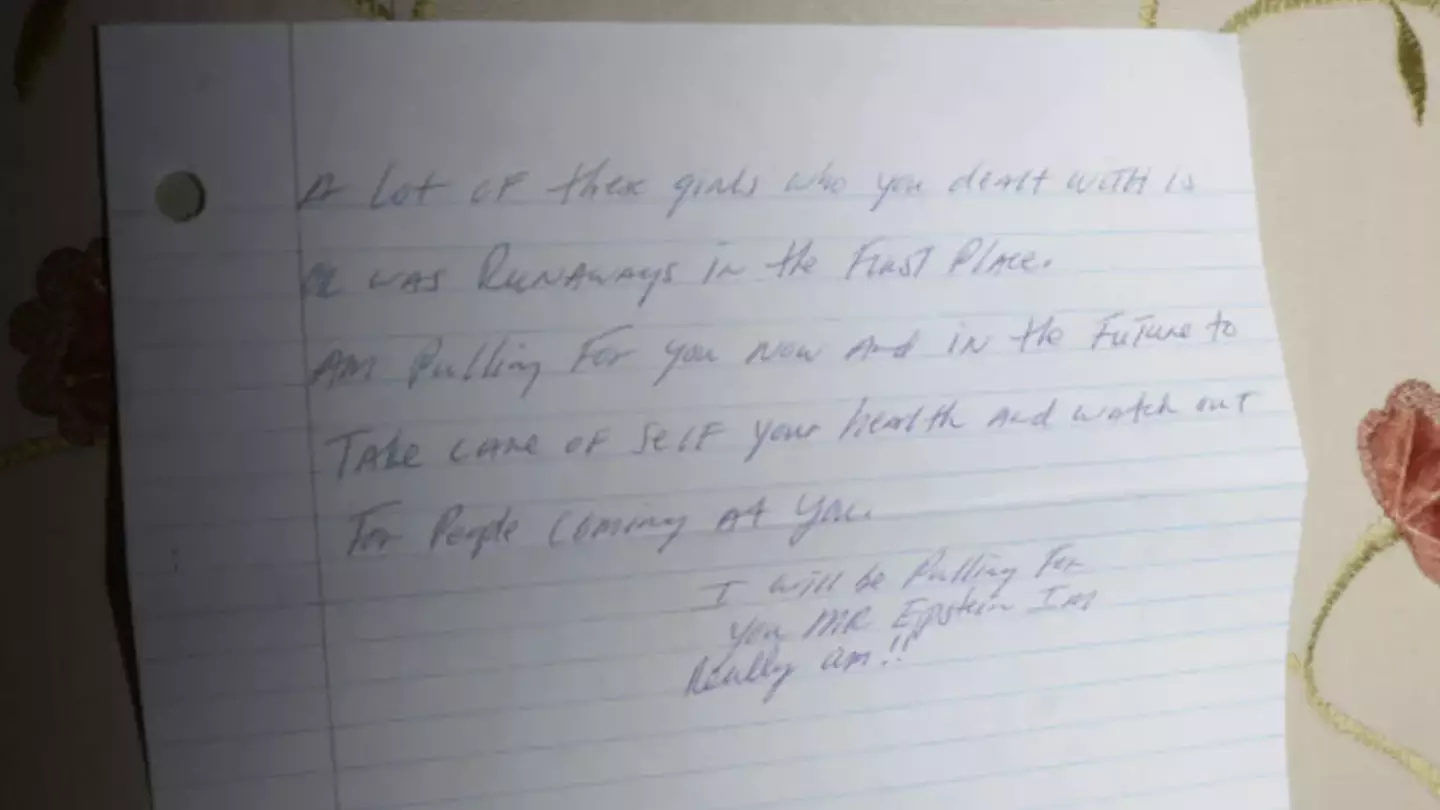 A Lot OF these girls who you dealt WITH is
OR WAS RUNAWAYS IN the First PLACE.
AM Pulling For you NOW And IN the Future to
TAke CARE OF SelF your health And watch out
For People Coming At You.
I will be Pulling For
you MR Epstein Im
Really am!!